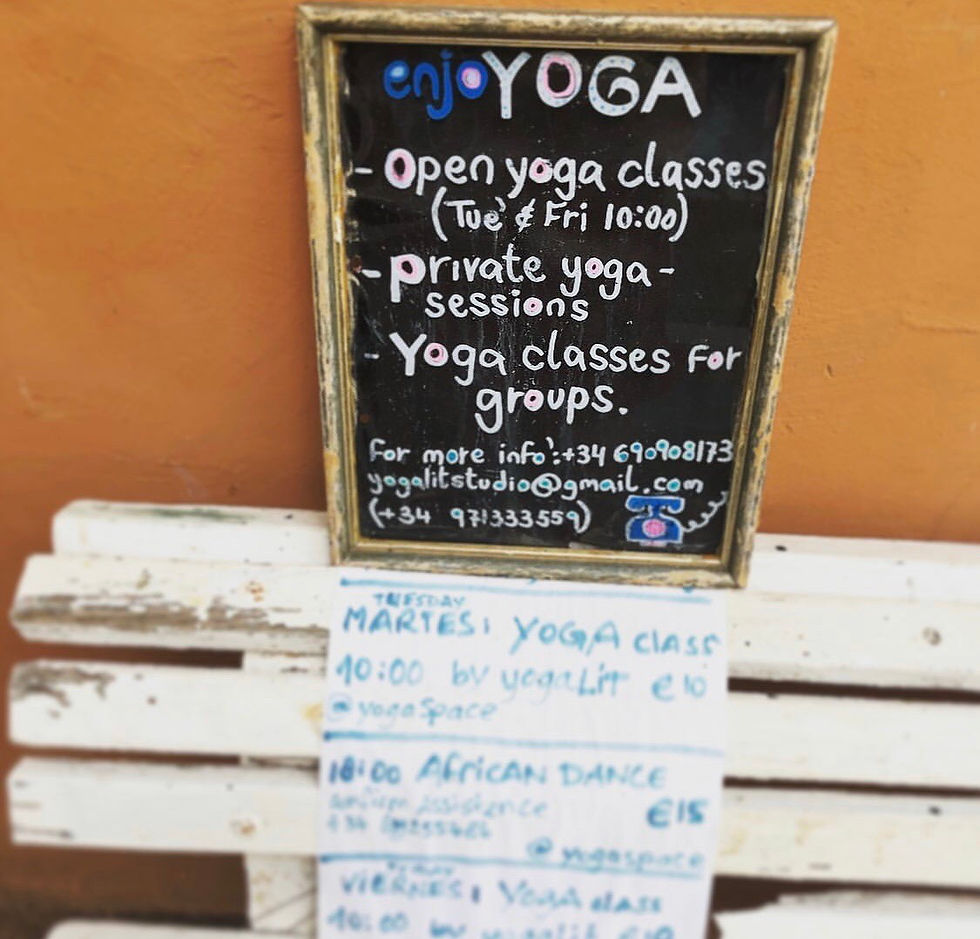 enjoYOGA
- Open yoga classes
(Tue' & Fri 10:00)
- private yoga -
sessions
- Yoga classes for
groups.
For more info':+34 690908173
yogalitstudio@gmail.com
(+34 971333559)
TUESDAY
MARTES: YOGA class
10:00 by yogaLit €10
@yogaSpace
18:00 AfricAN DANCE
€15
+34
@yogaspace
VIERNES: YOGA class
10:00 by yogalit €10